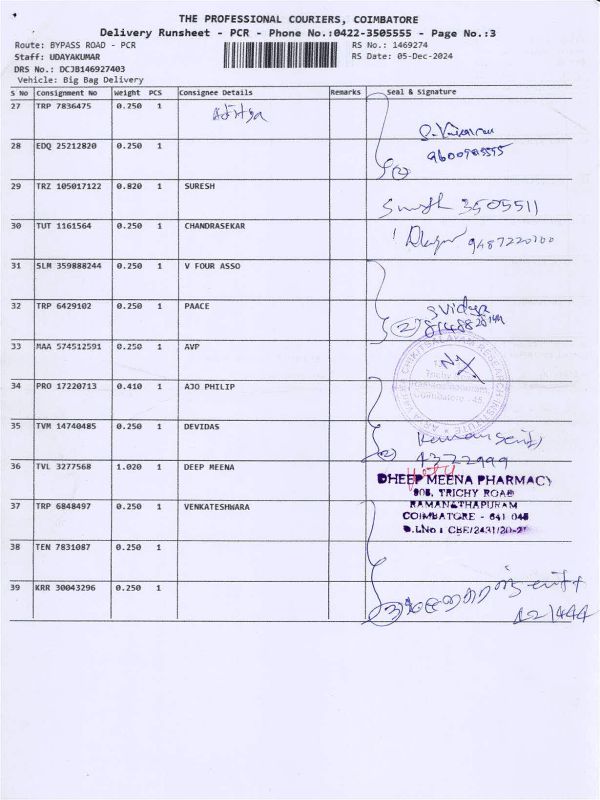 THE PROFESSIONAL COURIERS, COIMBATORE
Delivery Runsheet - PCR - Phone No.:0422-3505555 - Page No.:3
Route: BYPASS ROAD - PCR
RS No.: 1469274
Staff: UDAYAKUMAR
RS Date: 05-Dec-2024
DRS No.: DCJB146927403
Vehicle: Big Bag Delivery
S No Consignment No Weight PCS Consignee Details Remarks Seal & Signature
27 TRP 7836475 0.250 1 Aditya
28 EDQ 25212820 0.250 1
29 TRZ 105017122 0.820 1 SURESH 3505511
30 TUT 1161564 0.250 1 CHANDRASEKAR 9487220700
31 SLM 359888244 0.250 1 V FOUR ASSO
32 TRP 6429102 0.250 1 PAACE
33 MAA 574512591 0.250 1 AVP
34 PRO 17220713 0.410 1 AJO PHILIP
35 TVM 14740485 0.250 1 DEVIDAS
4322999
36 TVL 3277568 1.020 1 DEEP MEENA
DHEEP MEENA PHARMACY
808, TRICHY ROAD
RAMANATHAPURAM
COIMBATORE - 641 045
37 TRP 6848497 0.250 1 VENKATESHWARA
38 TEN 7831087 0.250 1
39 KRR 30043296 0.250 1
421444